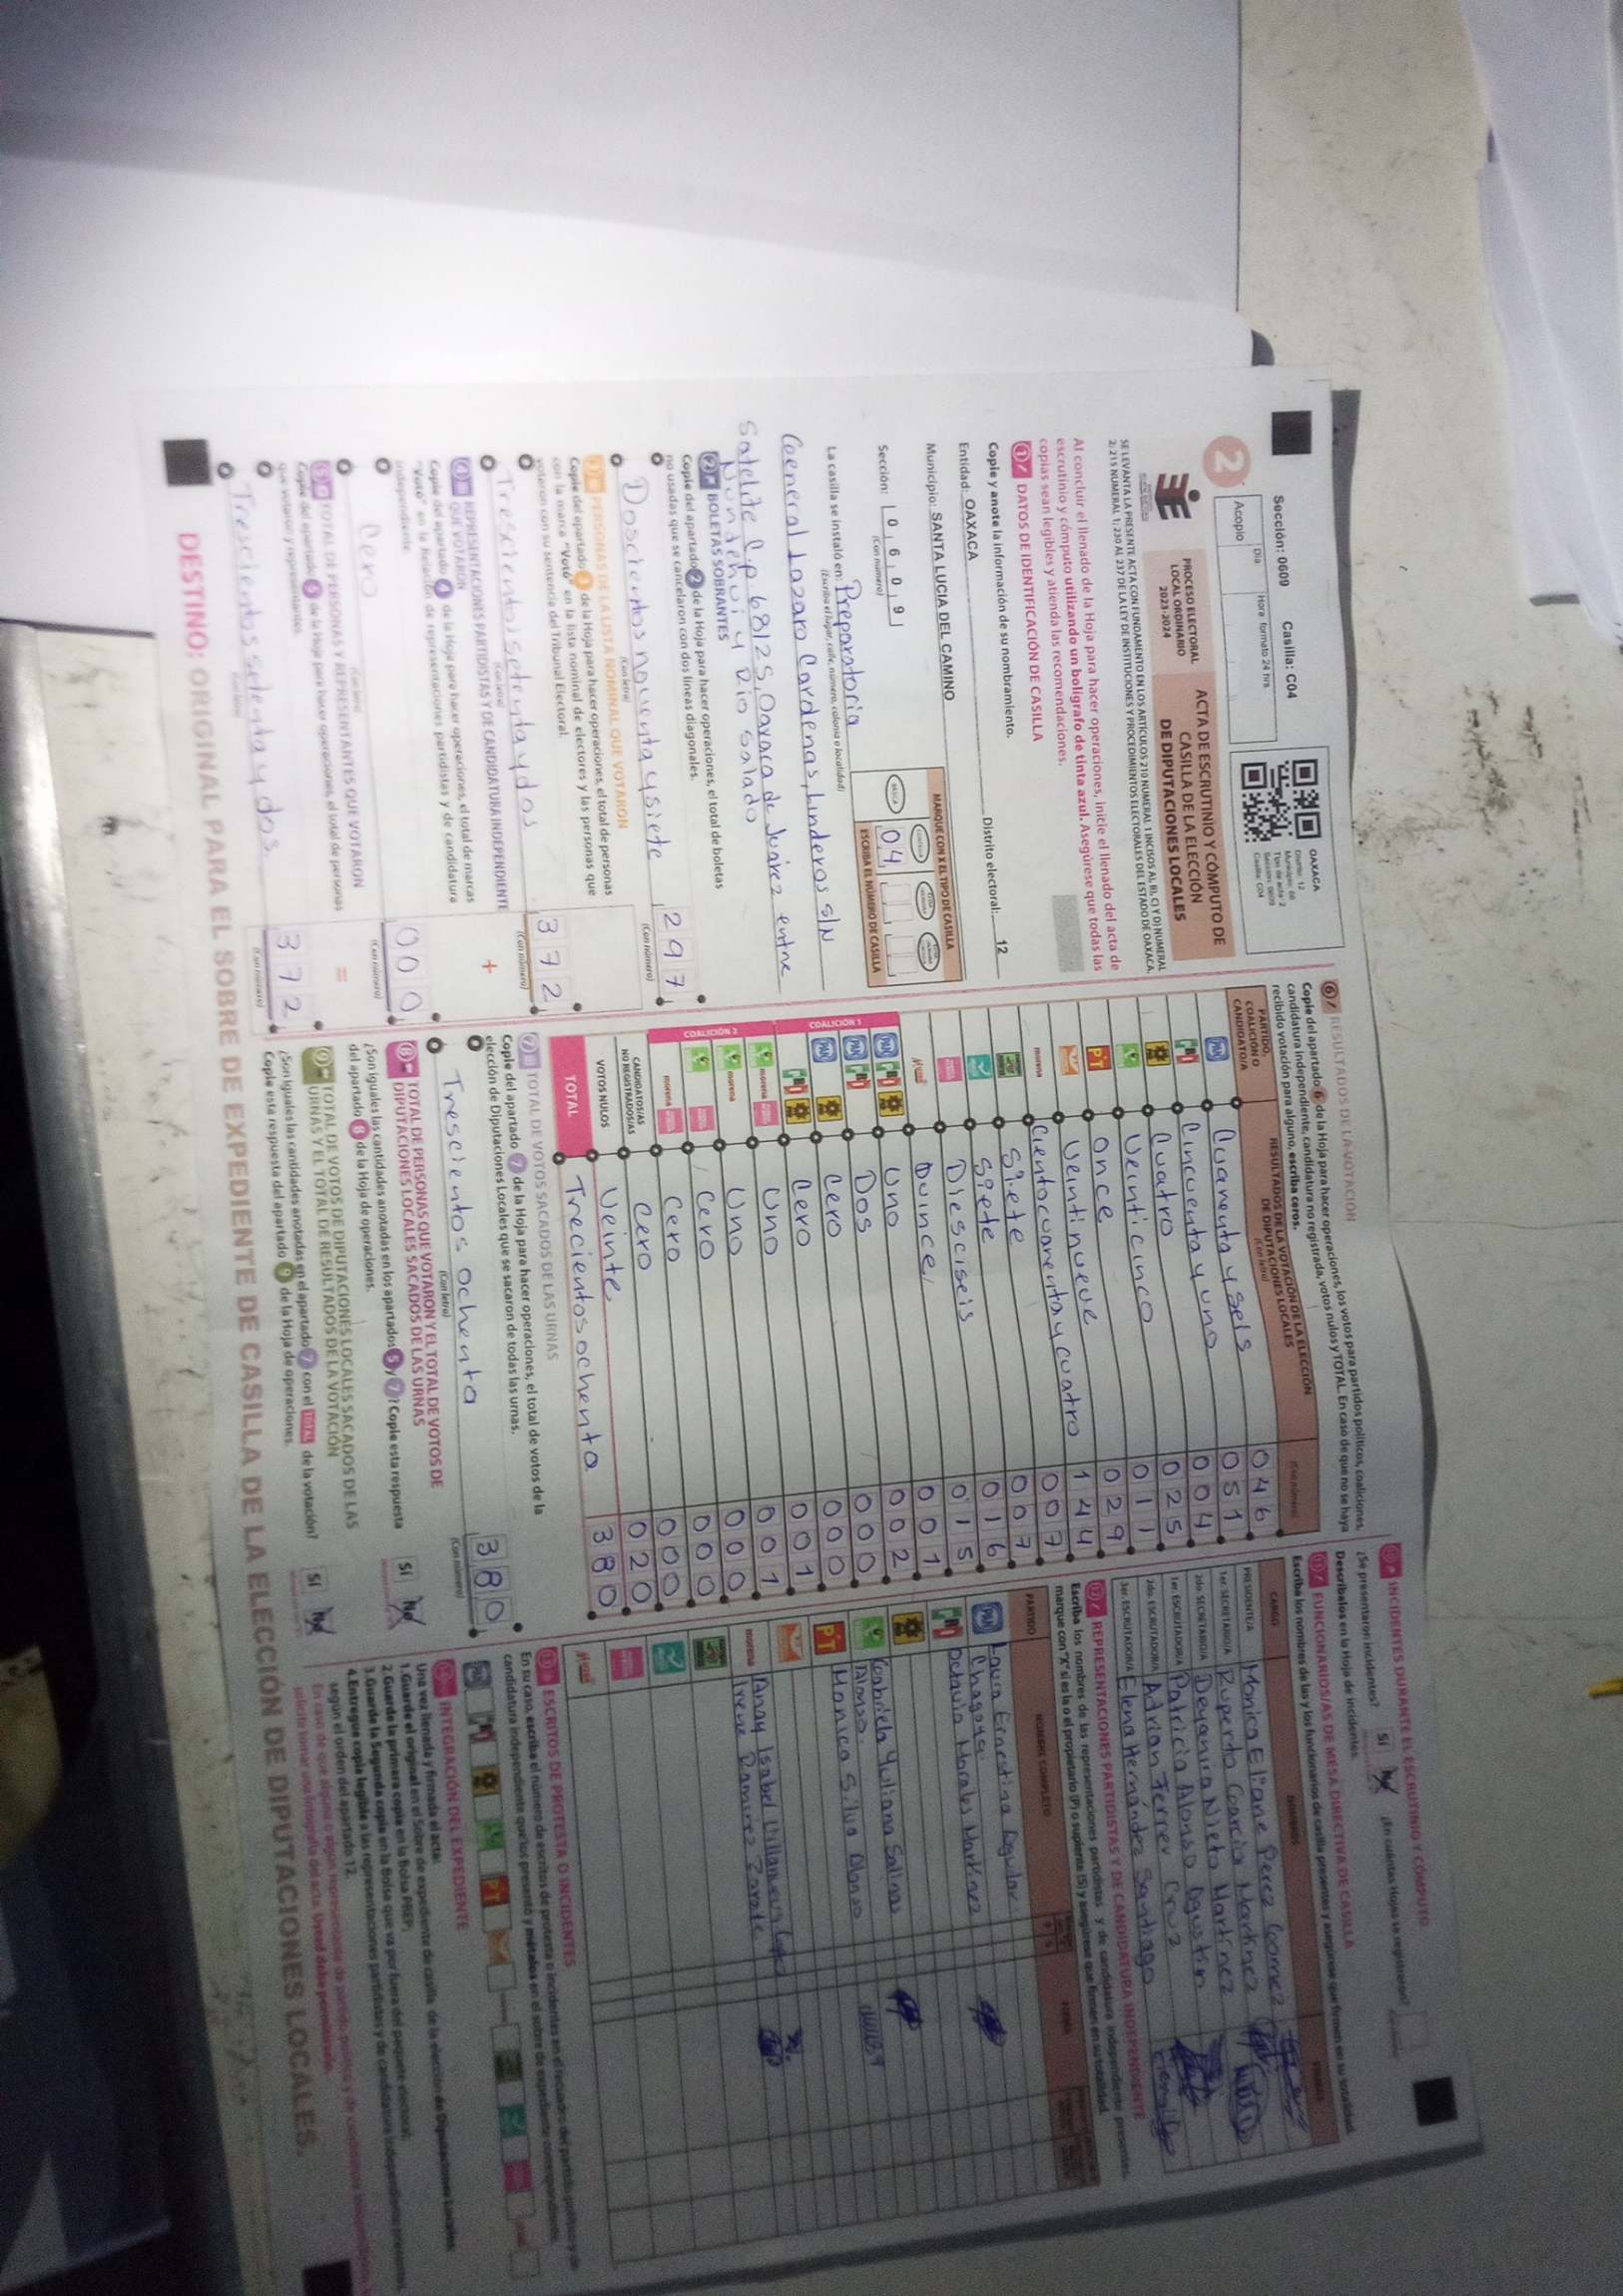 Sección: 0609 Casilla: C04
Día Hora formato 24 hrs
Acopio
2
PROCESO ELECTORAL
LOCAL ORDINARIO
2023-2024
ACTA DE ESCRUTINIO Y CÓMPUTO DE
CASILLA DE LA ELECCIÓN
DE DIPUTACIONES LOCALES
OAXACA
Distrito: 12
Sección: 0609
Casilla: C04
SE LEVANTA LA PRESENTE ACTA CON FUNDAMENTO EN LOS ARTÍCULOS 210 NUMERAL 1 INCISOS A), B), C) Y D) NUMERAL
2; 215 NUMERAL 1; 230 AL 237 DE LA LEY DE INSTITUCIONES Y PROCEDIMIENTOS ELECTORALES DEL ESTADO DE OAXACA.
Al concluir el llenado de la Hoja para hacer operaciones, inicie el llenado del acta de
escrutinio y cómputo utilizando un bolígrafo de tinta azul. Asegúrese que todas las
copias sean legibles y atienda las recomendaciones.
1 DATOS DE IDENTIFICACIÓN DE CASILLA
Copie y anote la información de su nombramiento.
Entidad: OAXACA Distrito electoral: 12
Municipio: SANTA LUCIA DEL CAMINO
MARQUE CON X EL TIPO DE CASILLA
Sección: 0 6 0 9
(Con número)
ESCRIBA EL NÚMERO DE CASILLA
04
La casilla se instaló en: Preparatoria
(Escriba el lugar, calle, número, colonia o localidad)
General Lazaro Cardenas, linderos s/N
Satelite C.p 68125, Oaxaca de Juárez entre
y Rio Salado
2 BOLETAS SOBRANTES
Copie del apartado 2 de la Hoja para hacer operaciones, el total de boletas
no usadas que se cancelaron con dos líneas diagonales.
Doscientos noventa y siete 297
(Con letra) (Con número)
3 PERSONAS DE LA LISTA NOMINAL QUE VOTARON
Copie del apartado 3 de la Hoja para hacer operaciones, el total de personas
con la marca "Votó" en la lista nominal de electores y las personas que
votaron con su sentencia del Tribunal Electoral.
Trescientos setenta y dos 372
(Con letra) (Con número)
4 REPRESENTACIONES PARTIDISTAS Y DE CANDIDATURA INDEPENDIENTE
QUE VOTARON
Copie del apartado 4 de la Hoja para hacer operaciones, el total de marcas
"Votó" en la Relación de representaciones partidistas y de candidatura
independiente.
Cero 000
(Con letra) (Con número)
5 TOTAL DE PERSONAS Y REPRESENTANTES QUE VOTARON
Copie del apartado 5 de la Hoja para hacer operaciones, el total de personas
que votaron y representantes.
Trescientos setenta y dos 372
(Con letra) (Con número)
6 RESULTADOS DE LA VOTACIÓN
Copie del apartado 6 de la Hoja para hacer operaciones, los votos para partidos políticos, coaliciones,
candidatura independiente, candidatura no registrada, votos nulos y TOTAL. En caso de que no se haya
recibido votación para alguno, escriba ceros.
PARTIDO,
COALICIÓN O
CANDIDATO/A
RESULTADOS DE LA VOTACIÓN DE LA ELECCIÓN
DE DIPUTACIONES LOCALES
(Con letra) (Con número)
PAN Cuarenta y seis 046
PRI Cincuenta y uno 051
Cuatro 004
Veinticinco 025
PT Once 011
Veintinueve 029
morena Ciento cuarenta y cuatro 144
Siete 007
Siete 007
Diesciseis 016
Quince 015
COALICIÓN 1
PAN PRI Uno 001
PAN PRI Dos 002
PAN Cero 000
PRI Cero 000
COALICIÓN 2
morena Uno 001
morena Uno 001
Cero 000
morena Cero 000
CANDIDATOS/AS
NO REGISTRADOS/AS Cero 000
VOTOS NULOS Veinte 020
TOTAL Trecientos ochenta 380
7 TOTAL DE VOTOS SACADOS DE LAS URNAS
Copie del apartado 7 de la Hoja para hacer operaciones, el total de votos de la
elección de Diputaciones Locales que se sacaron de todas las urnas.
Trescientos ochenta 380
(Con letra) (Con número)
8 TOTAL DE PERSONAS QUE VOTARON Y EL TOTAL DE VOTOS DE
DIPUTACIONES LOCALES SACADOS DE LAS URNAS
¿Son iguales las cantidades anotadas en los apartados 5 y 7? Copie esta respuesta
del apartado 8 de la Hoja de operaciones. SÍ No
9 TOTAL DE VOTOS DE DIPUTACIONES LOCALES SACADOS DE LAS
URNAS Y EL TOTAL DE RESULTADOS DE LA VOTACIÓN
¿Son iguales las cantidades anotadas en el apartado 7 con el TOTAL de la votación?
Copie esta respuesta del apartado 9 de la Hoja de operaciones. SÍ No
INCIDENTES DURANTE EL ESCRUTINIO Y CÓMPUTO
¿Se presentaron incidentes? SÍ No ¿En cuántas Hojas se registraron?
Descríbalos en la Hoja de incidentes.
11 FUNCIONARIOS/AS DE MESA DIRECTIVA DE CASILLA
Escriba los nombres de las y los funcionarios de casilla presentes y asegúrese que firmen en su totalidad.
CARGO NOMBRES FIRMAS
PRESIDENTE/A Monica Eliane Perez Gomez
1er. SECRETARIO/A Ruperto Garcia Martinez
2do. SECRETARIO/A Deyanira Nieto Martinez
1er. ESCRUTADOR/A Patricia Alonso Agustin
2do. ESCRUTADOR/A Adrian Ferrer Cruz
3er. ESCRUTADOR/A Elena Hernández Santiago
12 REPRESENTACIONES PARTIDISTAS Y DE CANDIDATURA INDEPENDIENTE
Escriba los nombres de las representaciones partidistas y de candidatura independiente presentes,
marque con "X" si es la o el propietario (P) o suplente (S) y asegúrese que firmen en su totalidad.
PARTIDO NOMBRE COMPLETO FIRMA
PAN Laura Ernestina Aguilar
Chagoya
PRI Octavio Morales Martínez
Gabriela Yuliana Salinas
Alonso.
PT Monica Silvia Alonso
morena Anay Isabel Villanueva
Irene Ramirez Zarate
13 ESCRITOS DE PROTESTA O INCIDENTES
En su caso, escriba el número de escritos de protesta o incidentes en el recuadro del partido político y de
candidatura independiente que los presentó y métalos en el sobre de expediente correspondiente.
INTEGRACIÓN DEL EXPEDIENTE
Una vez llenada y firmada el acta:
1.Guarde el original en el Sobre de expediente de casilla de la elección de Diputaciones Locales.
2.Guarde la primera copia en la Bolsa PREP.
3.Guarde la Segunda copia en la Bolsa que va por fuera del paquete electoral.
4.Entregue copia legible a las representaciones partidistas y de candidatura independiente presentes,
según el orden del apartado 12.
DESTINO: ORIGINAL PARA EL SOBRE DE EXPEDIENTE DE CASILLA DE LA ELECCIÓN DE DIPUTACIONES LOCALES.